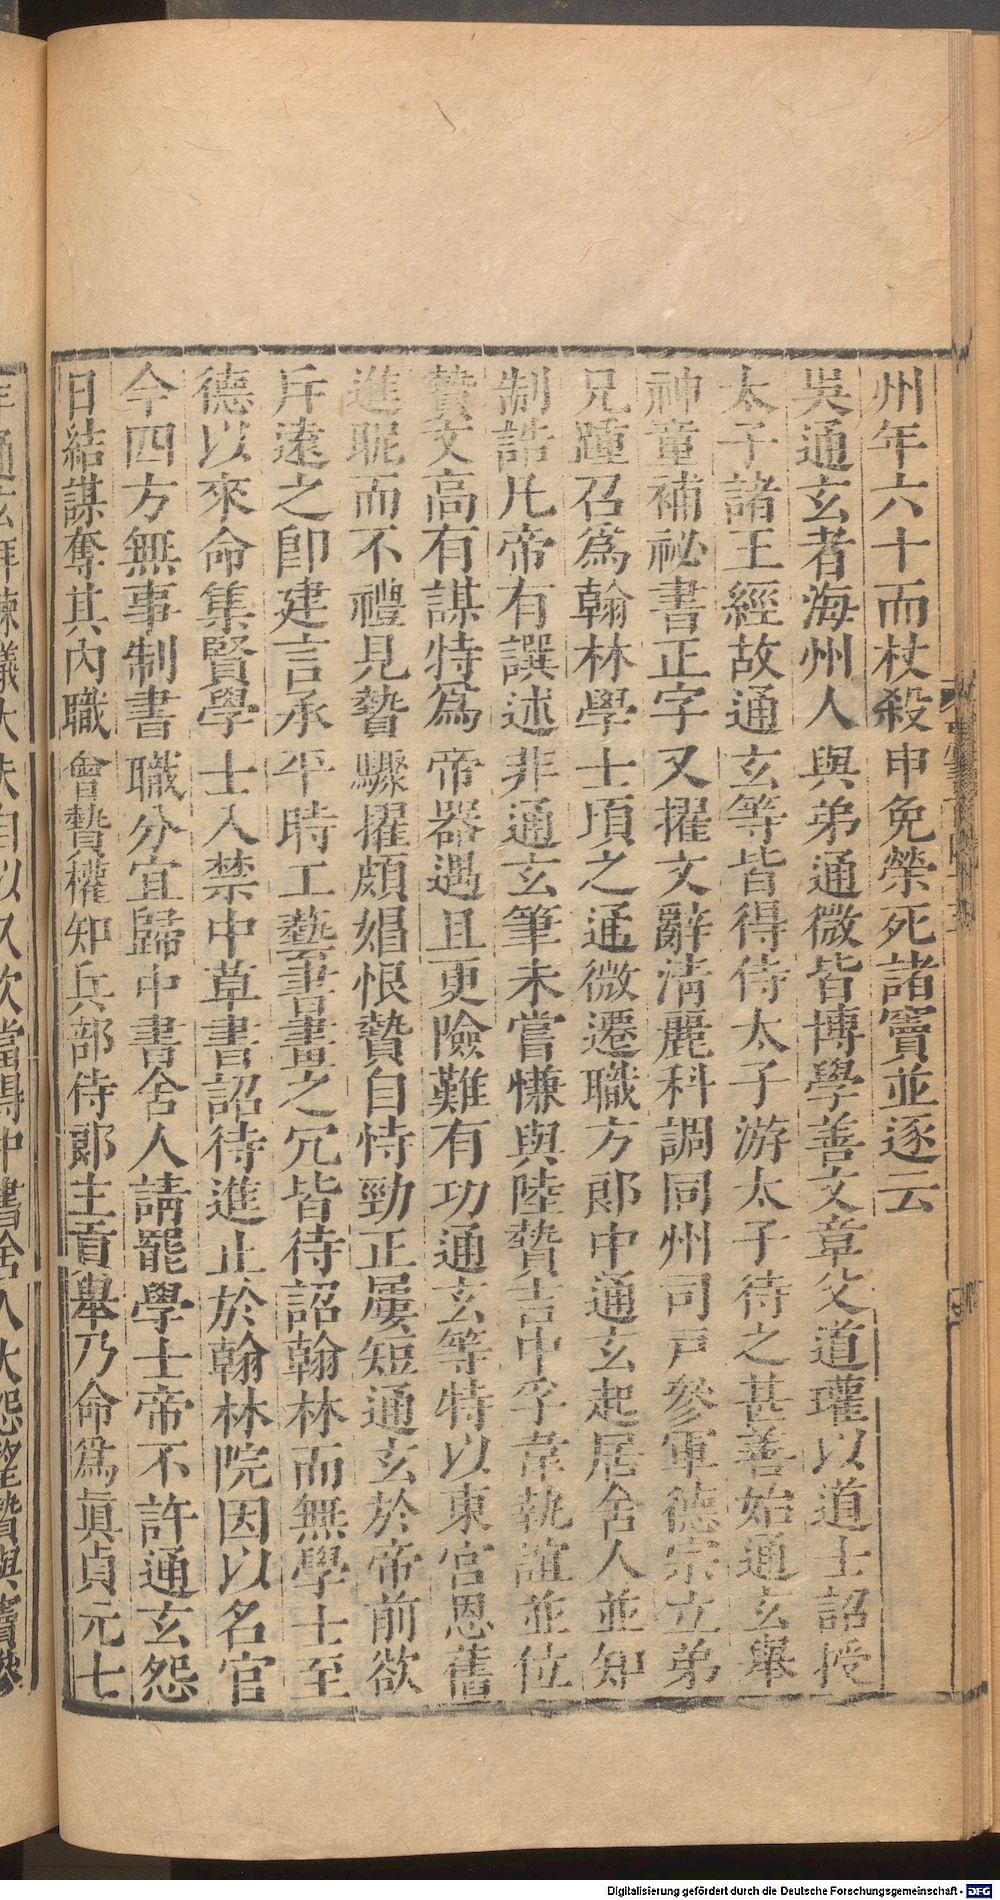 州年六十而杖殺申免榮死諸竇並逐云
吳通玄者海州人與弟通微皆博學善文章父道瓘以道士詔授
太子諸王經故通玄等皆得侍太子游太子待之甚善始通玄舉
神童補祕書正字又擢文辭清麗科調同州司戶參軍德宗立弟
兄踵召爲翰林學士頃之通微遷職方郎中通玄起居舍人並知
制誥凡帝有譔述非通玄筆未嘗慊與陸贄吉中孚韋執誼並位
贄文高有謀特爲帝器遇且更險難有功通玄等特以東宮恩舊
進昵而不禮見贄驟擢頗媢恨贄自恃勁正屢短通玄於帝前欲
斥遠之卽建言承平時工藝書畫之冗皆待詔翰林而無學士至
德以來命集賢學士入禁中草書詔待進止於翰林院因以名官
今四方無事制書職分宜歸中書舍人請罷學士帝不許通玄怨
日結謀奪其內職會贄權知兵部侍郎主貢舉乃命爲眞貞元七
年通玄拜諫議大夫自以久次當得中書舍人大怨望贄與竇參
Digitalisierung gefördert durch die Deutsche Forschungsgemeinschaft - DFG